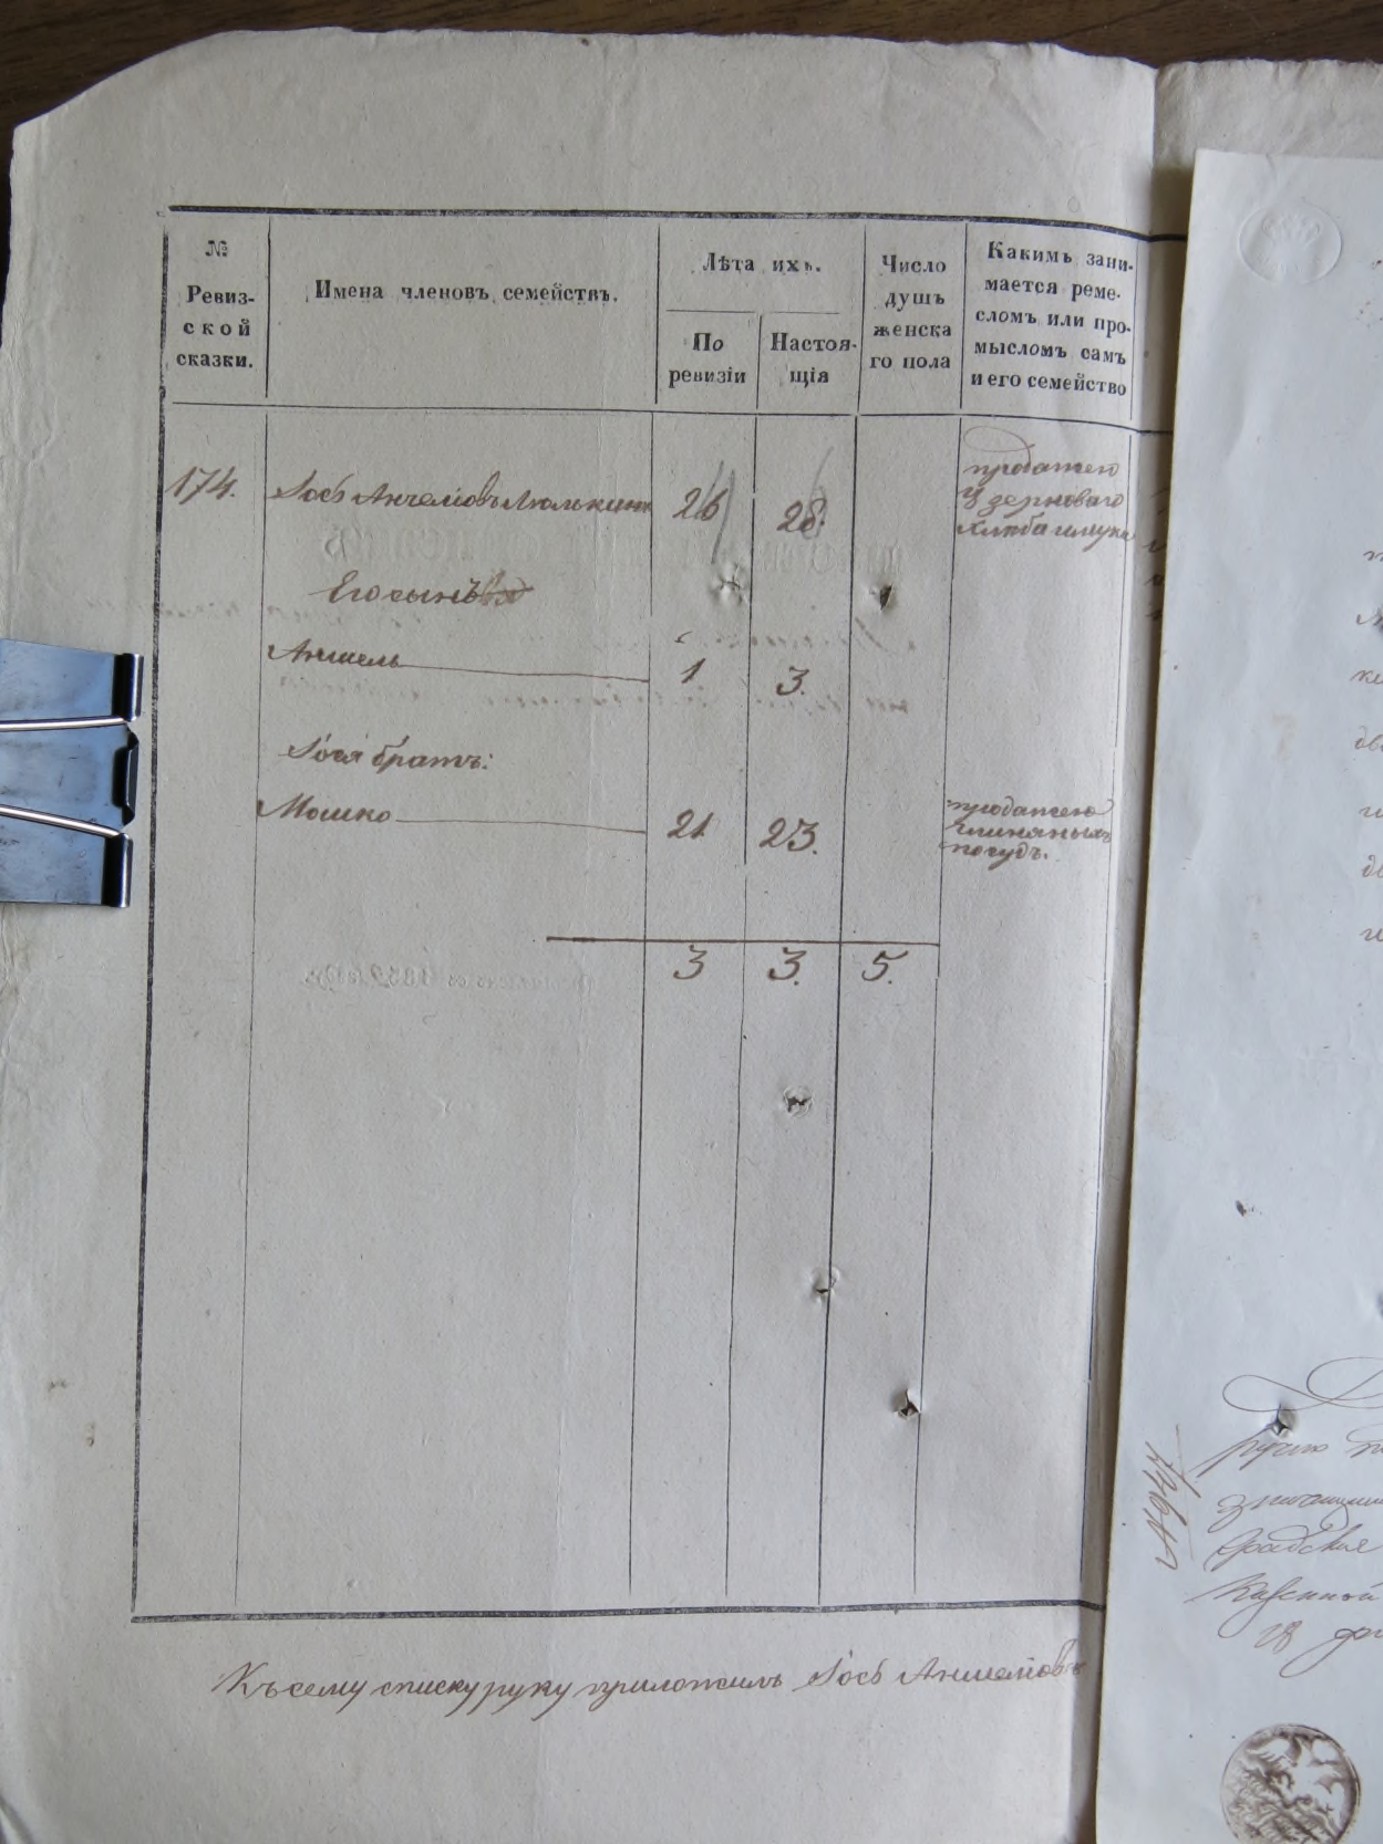 №
Ревиз-
ской
сказки.
Имена членовъ семействъ.
Лѣта ихъ.
По
ревизіи
Настоя-
щія
Число
душъ
женска
го пола
Какимъ зани-
мается реме-
сломъ или про-
мысломъ самъ
и его семейство
174.
Іось Аншеліовъ Люлькинъ
26
28.
продажею
зерноваго
хлѣба и муки
Его сынъ
Аншель
1
3.
Іося братъ:
Мошко
21
23.
продажею
глиняныхъ
посудъ.
3
3.
5.
Къ сему списку руку приложилъ Іось Аншеліовъ
Казенной